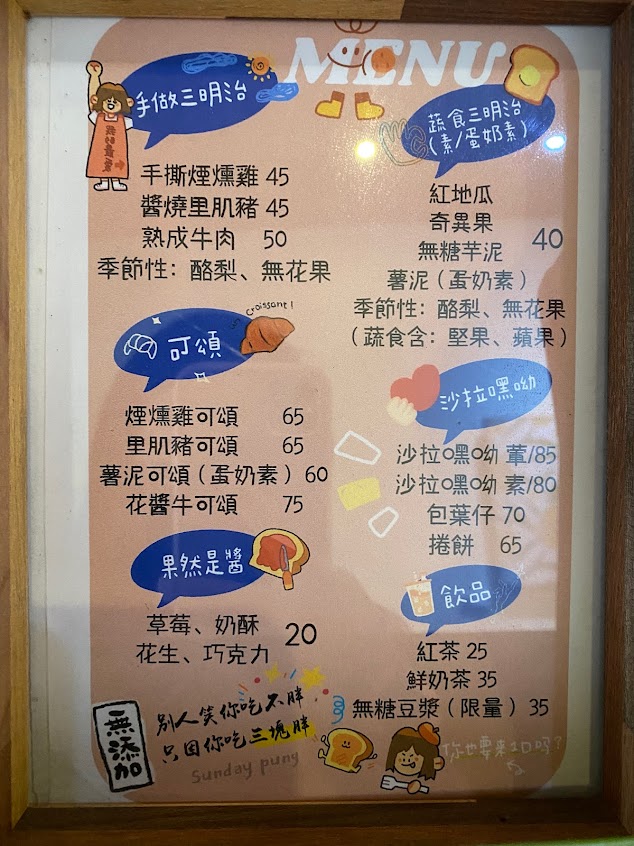 MENU
手做三明治
手撕煙燻雞 45
醬燒里肌豬 45
熟成牛肉 50
季節性：酪梨、無花果
蔬食三明治
（素/蛋奶素）
紅地瓜
奇異果
無糖芋泥
40
薯泥（蛋奶素）
季節性：酪梨、無花果
（蔬食含：堅果、蘋果）
Croissant!
可頌
煙燻雞可頌 65
里肌豬可頌 65
薯泥可頌（蛋奶素）60
花醬牛可頌 75
沙拉嘿呦
沙拉嘿呦 葷/85
沙拉嘿呦 素/80
包葉仔 70
捲餅 65
果然是醬
草莓、奶酥
花生、巧克力
20
飲品
紅茶 25
鮮奶茶 35
無糖豆漿（限量）35
無添加
別人笑你吃不胖，
只因你吃三塊胖
sunday pung
你也要來1口吗？